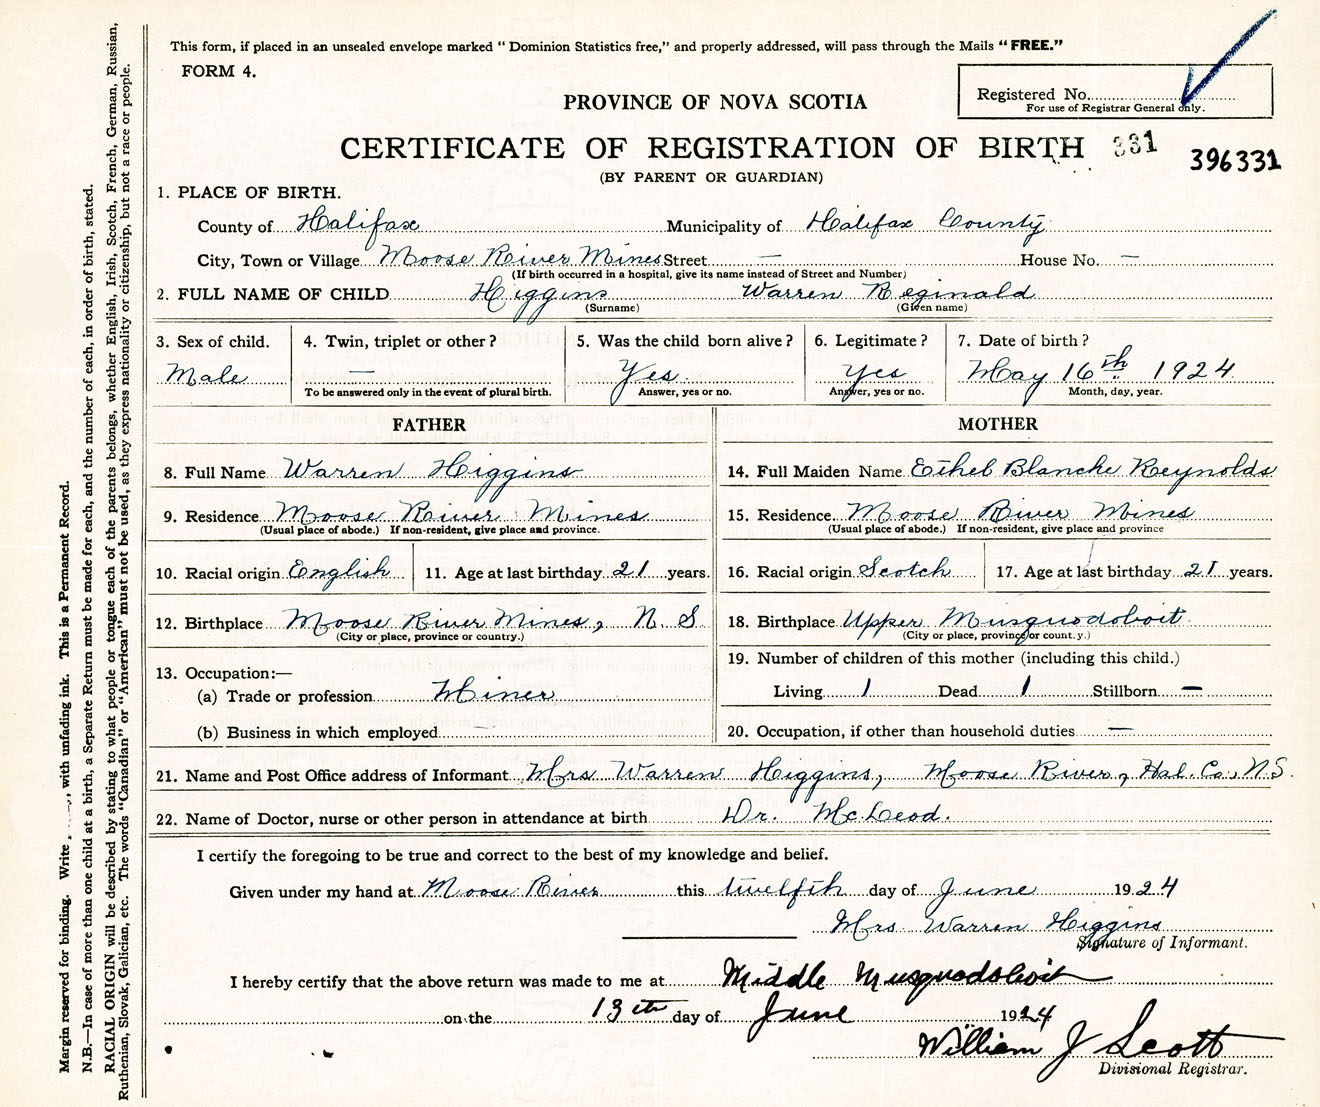 This form, if placed in an unsealed envelope marked "Dominion Statistics free," and properly addressed, will pass through the Mails "FREE."
FORM 4.
Registered No.
For use of Registrar General only.
PROVINCE OF NOVA SCOTIA
CERTIFICATE OF REGISTRATION OF BIRTH 331 396331
(BY PARENT OR GUARDIAN)
1. PLACE OF BIRTH.
County of Halifax Municipality of Halifax County
City, Town or Village Moose River Mines Street — House No. —
(If birth occurred in a hospital, give its name instead of Street and Number)
2. FULL NAME OF CHILD Higgins Warren Reginald
(Surname) (Given name)
3. Sex of child. 4. Twin, triplet or other? 5. Was the child born alive? 6. Legitimate? 7. Date of birth?
Male — Yes Yes May 16th 1924
To be answered only in the event of plural birth. Answer, yes or no. Answer, yes or no. Month, day, year.
FATHER MOTHER
8. Full Name Warren Higgins 14. Full Maiden Name Ethel Blanche Reynolds
9. Residence Moose River Mines 15. Residence Moose River Mines
(Usual place of abode.) If non-resident, give place and province. (Usual place of abode.) If non-resident, give place and province
10. Racial origin English 11. Age at last birthday 21 years. 16. Racial origin Scotch 17. Age at last birthday 21 years.
12. Birthplace Moose River Mines, N. S 18. Birthplace Upper Musquodoboit
(City or place, province or country.) (City or place, province or count.y.)
13. Occupation:— 19. Number of children of this mother (including this child.)
(a) Trade or profession Miner Living 1 Dead 1 Stillborn —
(b) Business in which employed 20. Occupation, if other than household duties —
21. Name and Post Office address of Informant Mrs Warren Higgins, Moose River, Hal. Co., N.S.
22. Name of Doctor, nurse or other person in attendance at birth Dr. McLeod.
I certify the foregoing to be true and correct to the best of my knowledge and belief.
Given under my hand at Moose River this twelfth day of June 1924
Mrs. Warren Higgins
Signature of Informant.
I hereby certify that the above return was made to me at Middle Musquodoboit
on the 13th day of June 1924
William J Scott
Divisional Registrar.
Margin reserved for binding. Write with unfading ink. This is a Permanent Record.
N.B.—In case of more than one child at a birth, a Separate Return must be made for each, and the number of each, in order of birth, stated.
RACIAL ORIGIN will be described by stating to what people or tongue each of the parents belongs, whether English, Irish, Scotch, French, German, Russian,
Ruthenian, Slovak, Galician, etc. The words "Canadian" or "American" must not be used, as they express nationality or citizenship, but not a race or people.